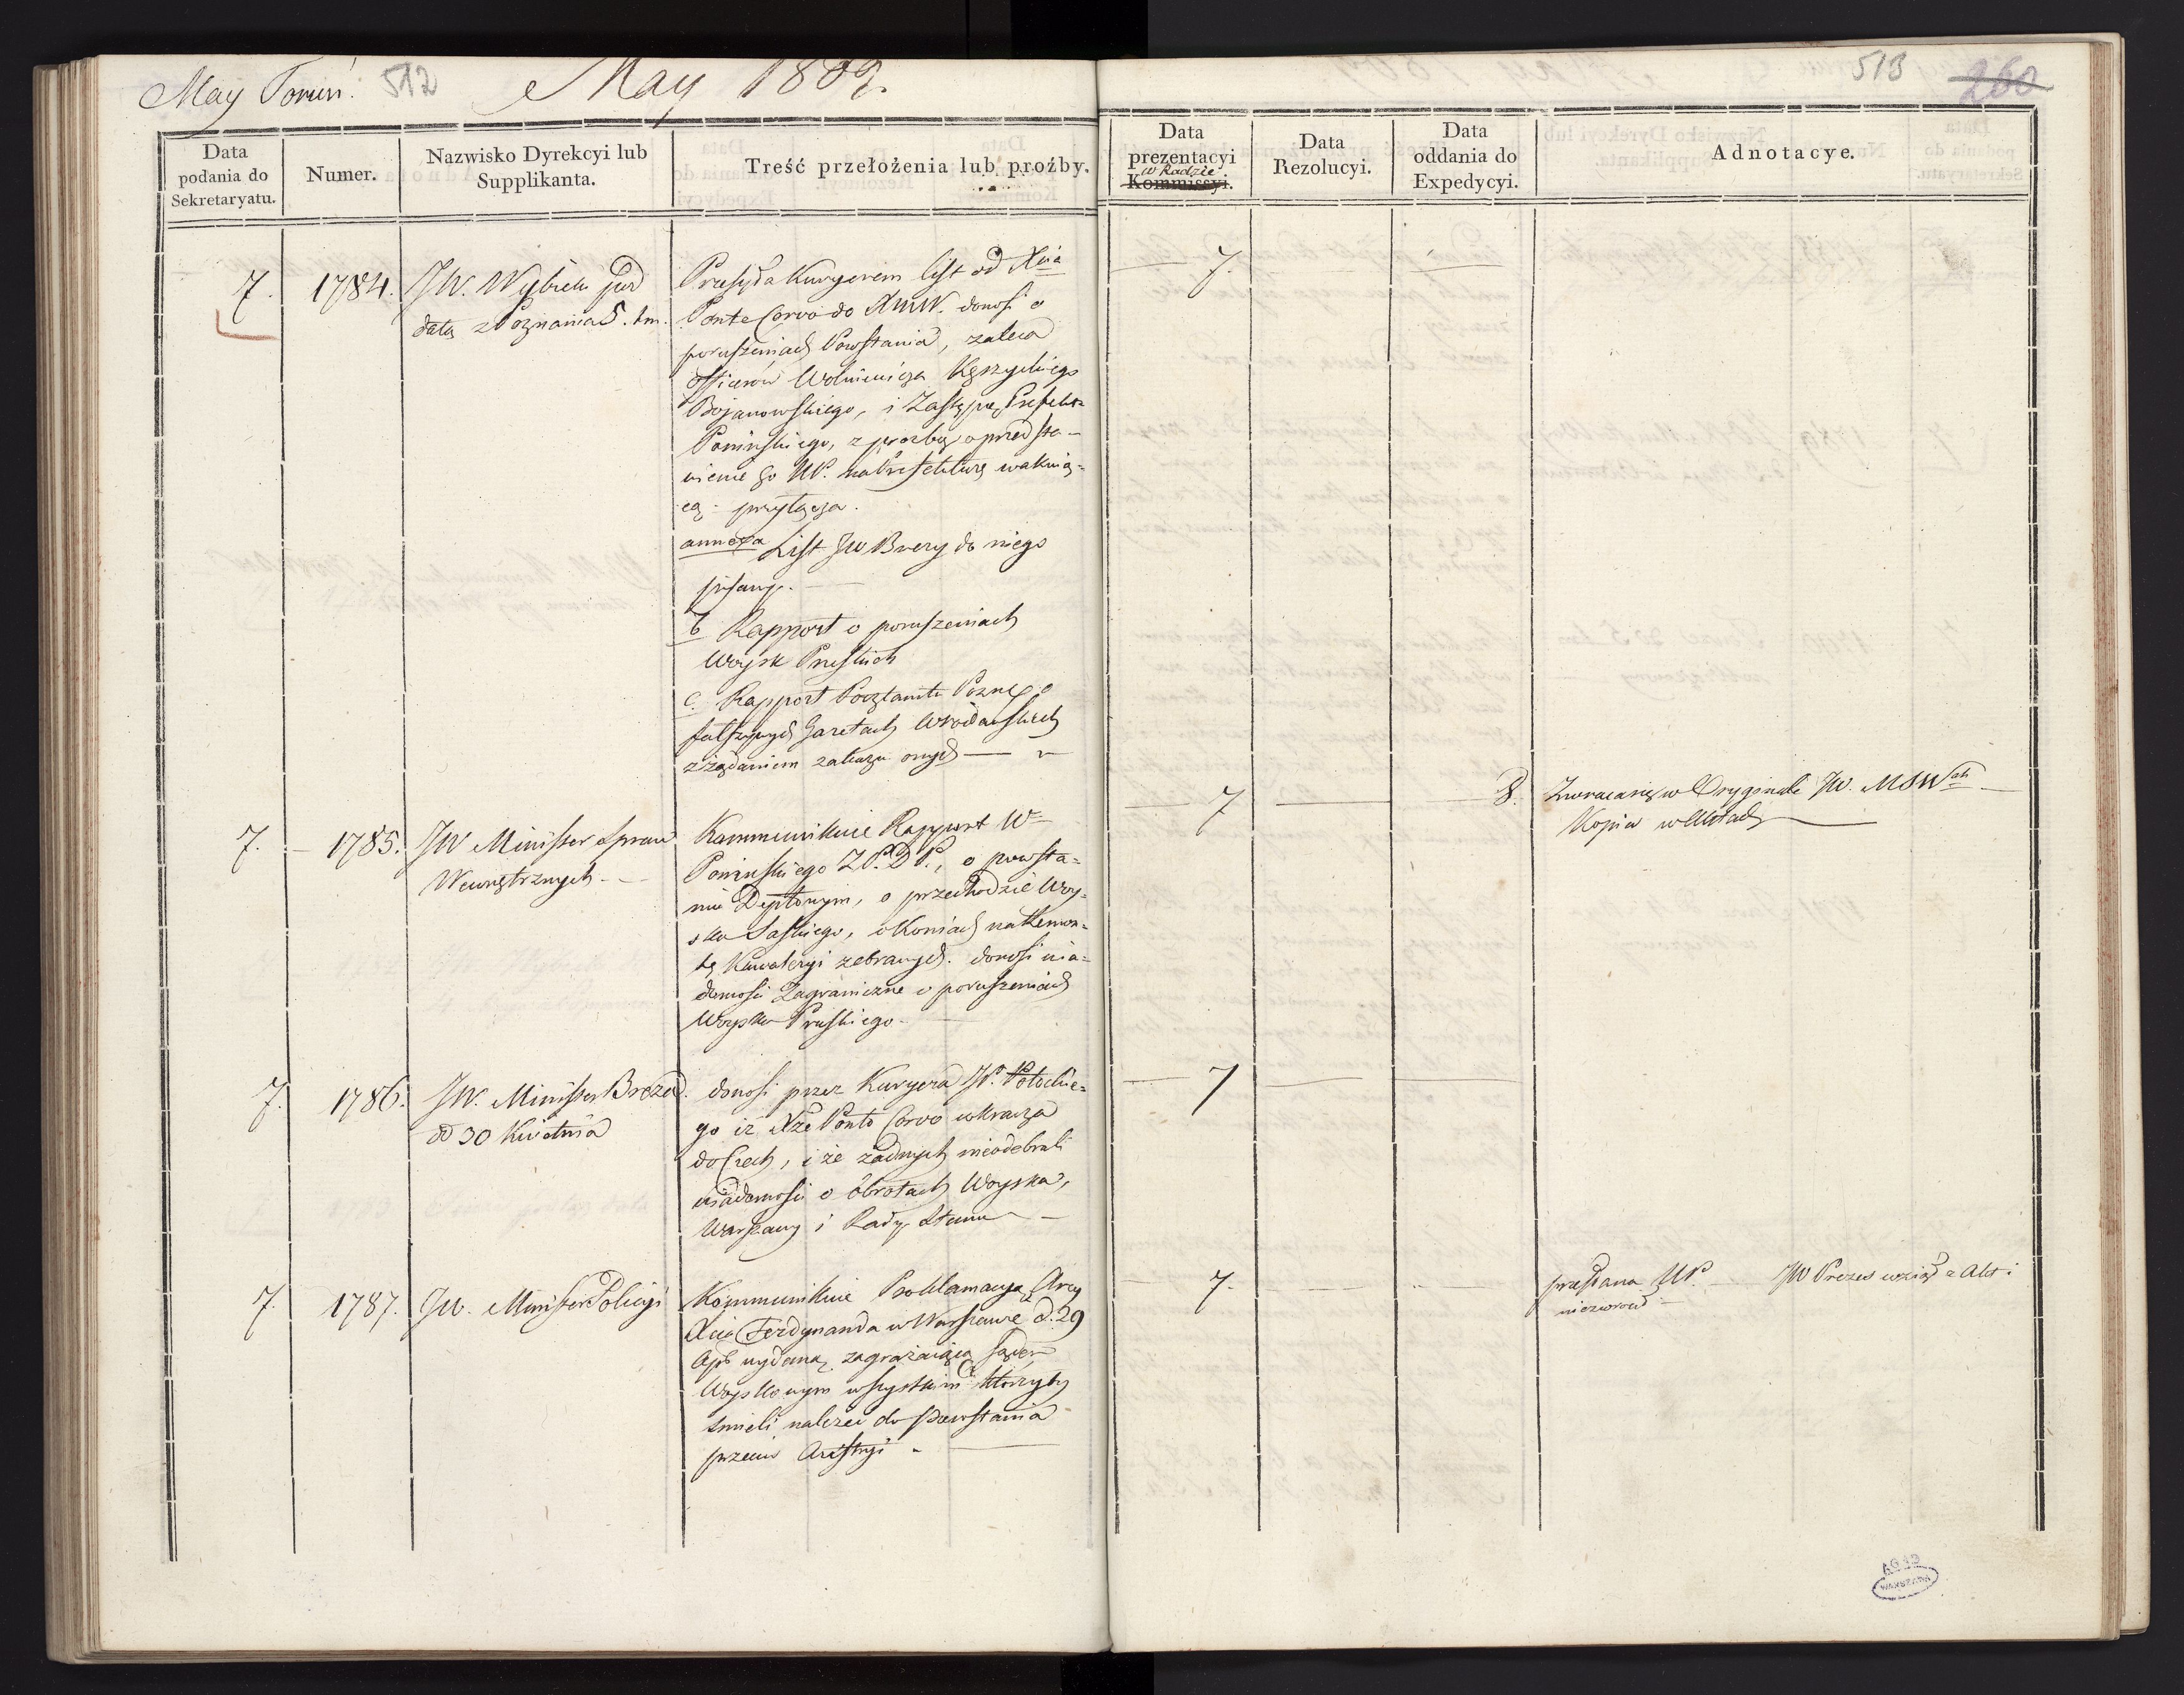 May Toruń. 512 May 1809.
513 260
Data podania do Sekretaryatu.
Numer.
Nazwisko Dyrekcyi lub Supplikanta.
Treść przełożenia lub proźby.
Data prezentacyi w Radzie Kommissyi.
Data Rezolucyi.
Data oddania do Expedycyi.
Adnotacye.
7. 1784. JW. Wybicki pod
datą z Poznania 5. tm.
Przesyła Kuryerem list od Xcia
Ponte Corvo do donosi o
poruszeniach Powstania, zaleca
officerów Wolniewicza Kęszyckiego
Bojanowskiego, i Zastępcę Prefekta
Ponińskiego, z prozbą o przedsta-
wienie go NP. na Prefekturę wakuią-
cą. przyłącza.
annexa List JW Brezy do niego
pisany.
b Rapport o poruszeniach
Woysk Pruskich
c. Rapport Pocztamtu Pozng o
fałszywych Gazetach Wrocławskich
z żądaniem zakazu onych
7.
7. 1785. JW Minister Spraw
Wewnętrznych
Kommunikuie Rapport W
Ponińskiego Z.P.D.P., o powsta-
niu Deptowym, o przechodzie Woy-
ska Saskiego, o Koniach na Remon-
tę Kawaleryi zebranych. donosi wia-
domości Zagraniczne o poruszeniach
Woyska Pruskiego
7 8. Zwraca się w Oryginale JW. MSW
Kopia w Aktach
7. 1786. JW. Minister Breza.
dd 30 Kwietnia
donosi przez Kuryera JP. Potockie-
go iż Xże Ponte Corvo wkracza
do Czech, i że żadnych nieodebrali
wiadomości o obrotach Woyska,
Warszawy i Rady Stanu
7
7. 1787. JW. Minister Policyi
Kommunikuie Proklamacyą Arcy
Xcia Ferdynanda w Warszawie d. 29
Apr wydaną, zagrażaiącą sądem
Woyskowym wszystkim którzyby
śmieli należeć do Powstania
przeciw Austryi
7. przesłana NP. JW Prezes wziął z Akt i
niezwrócił
WARSZAWA